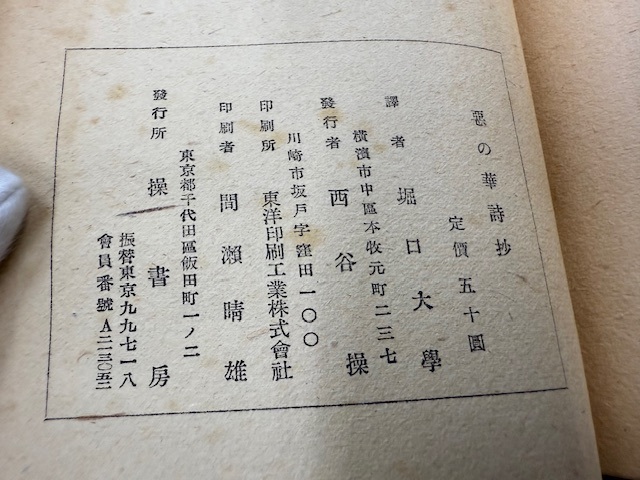 惡の華詩抄
定價 五十圓
譯者 堀口大學
橫濱市中區本牧元町二三七
發行者 西谷操
川崎市坂戸字窪田一〇〇
印刷所 東洋印刷工業株式會社
印刷者 間瀨晴雄
東京都千代田區飯田町一ノ二
發行所 操書房
振替東京九九七一八
會員番號A二三〇五二